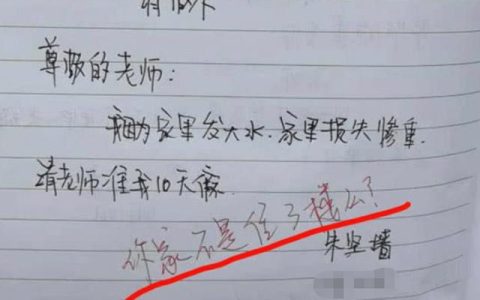 尊敬的老师：
我因为家里发大水.家里损失惨重.
请老师准我10天假.
你家不是住3楼么?
朱坚墙